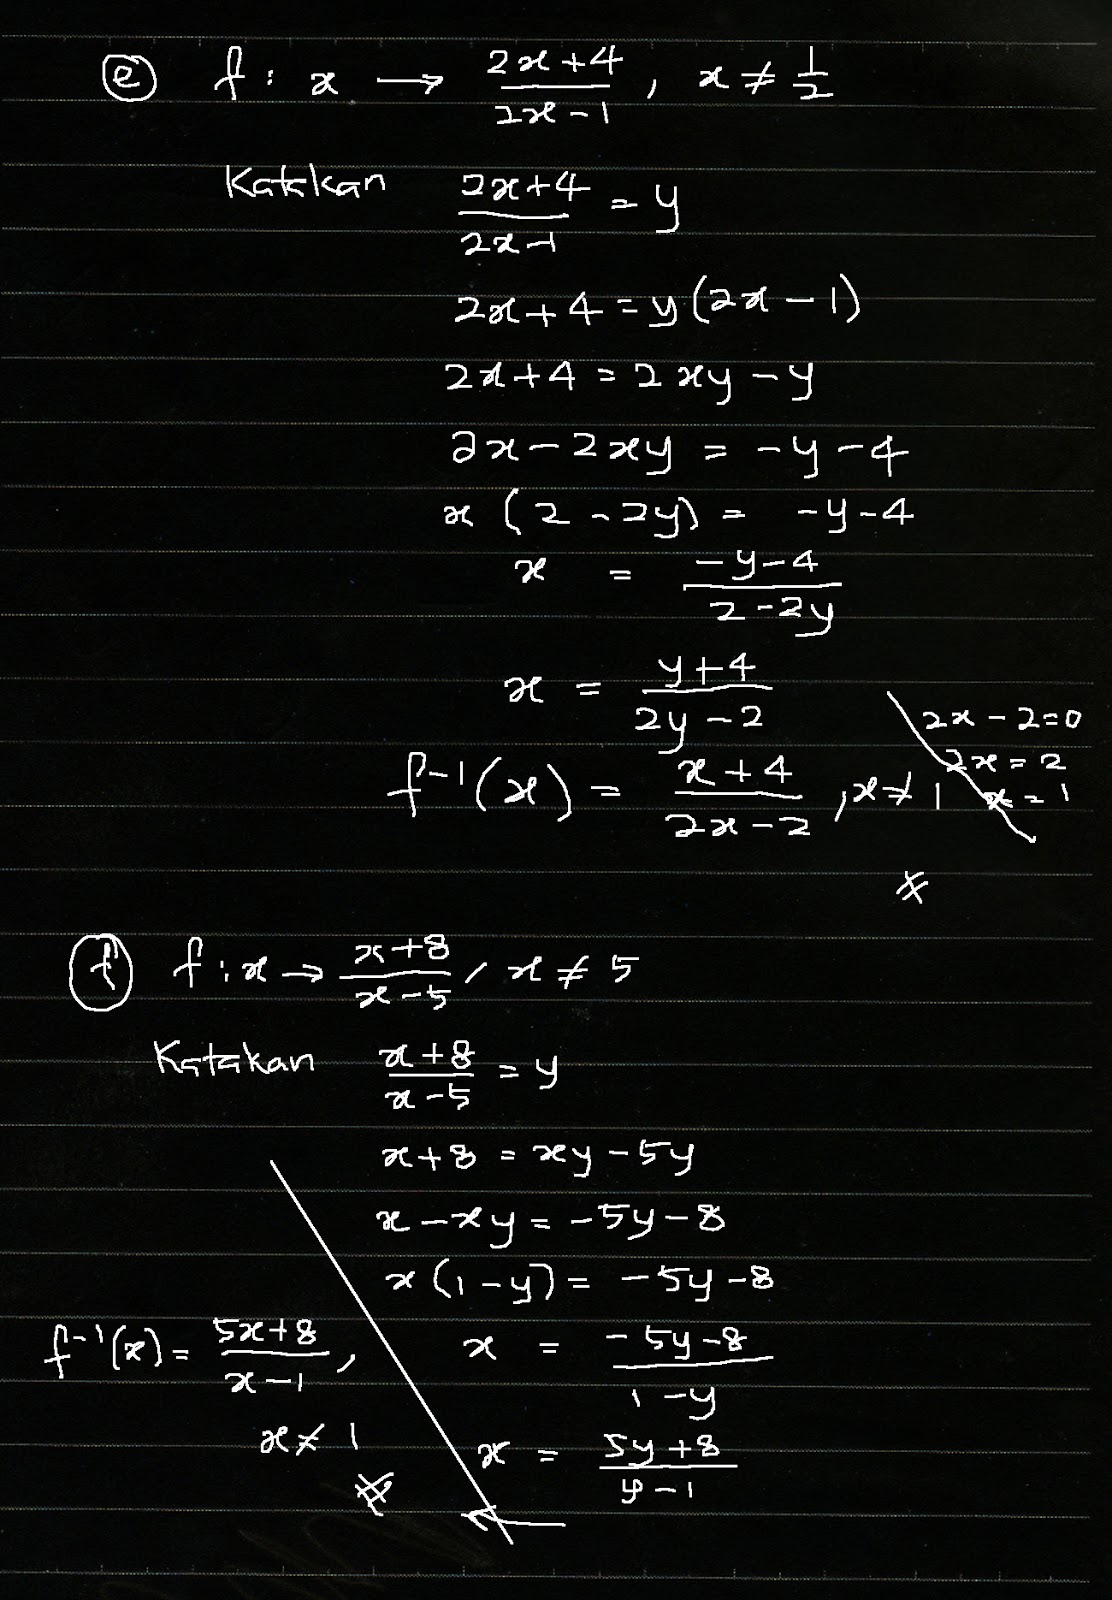 (e) f : x → (2x+4)/(2x−1) , x ≠ 1/2
Katakan (2x+4)/(2x−1) = y
2x+4 = y(2x−1)
2x+4 = 2xy−y
2x−2xy = −y−4
x(2−2y) = −y−4
x = (−y−4)/(2−2y)
x = (y+4)/(2y−2)
2x−2=0
2x=2
x=1
f⁻¹(x) = (x+4)/(2x−2) , x≠1
(f) f : x → (x+8)/(x−5) , x ≠ 5
Katakan (x+8)/(x−5) = y
x+8 = xy−5y
x−xy = −5y−8
x(1−y) = −5y−8
x = (−5y−8)/(1−y)
x = (5y+8)/(y−1)
f⁻¹(x) = (5x+8)/(x−1) ,
x≠1